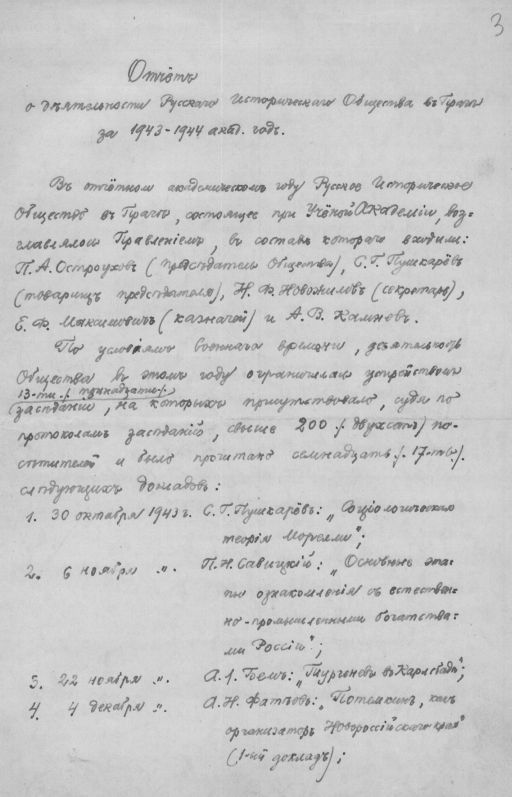 3
Отчётъ
о дѣятельности Русскаго Историческаго Общества въ Прагѣ
за 1943-1944 акад. годъ.
Въ отчётномъ академическомъ году Русское Историческое
Общество въ Прагѣ, состоящее при Учёной Академіи, воз-
главлялось Правленіемъ, въ составъ котораго входили:
П.А. Остроуховъ (предсѣдатель Общества), С.Г. Пушкарёвъ
(товарищъ предсѣдателя), Н.Ф. Новожиловъ (секретарь),
Е.Ф. Максимовичъ (казначей) и А.В. Калневъ.
По условіямъ военнаго времени, дѣятельность
Общества въ этомъ году ограничилась устройствомъ
13-ти ./. тринадцати ./.
засѣданій, на которыхъ присутствовало, судя по
протоколамъ засѣданій, свыше 200 ./. двухсотъ) по-
сѣтителей и было прочитано семнадцать ./. 17-ть ./.
слѣдующихъ докладовъ:
1. 30 октября 1943 г. С.Г. Пушкарёвъ: „Соціологическая
теорія Морелли";
2. 6 ноября „. П.Н. Савицкій: „Основные эта-
пы ознакомленія съ естествен-
но-промышленными богатства-
ми Россіи";
3. 22 ноября „. А.Л. Бемъ: „Тургеневъ въ Карлсбадѣ";
4. 4 декабря „. А.Н. Фатѣевъ: „Потемкинъ, какъ
организаторъ Новороссійскаго края"
(1-ый докладъ);